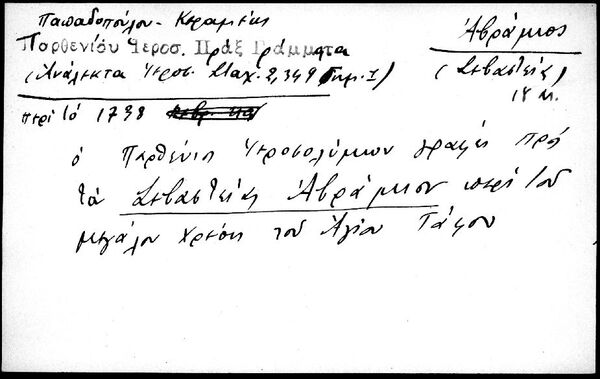 Παπαδοπούλου - Κεραμέως
Παρθενίου Ιεροσ. Πράξ Γράμματα
(Ἀνάλεκτα Ἱεροσ. Σταχ. 2, 349
Ἀβράμιος
(Σεβαστείας)
18 αι.
περί τό 1738
ὁ Παρθένιος Ἱεροσολύμων γράφει πρός
τόν Σεβαστείας Ἀβράμιον περί τοῦ
μεγάλου χρέους τοῦ Ἁγίου Τάφου